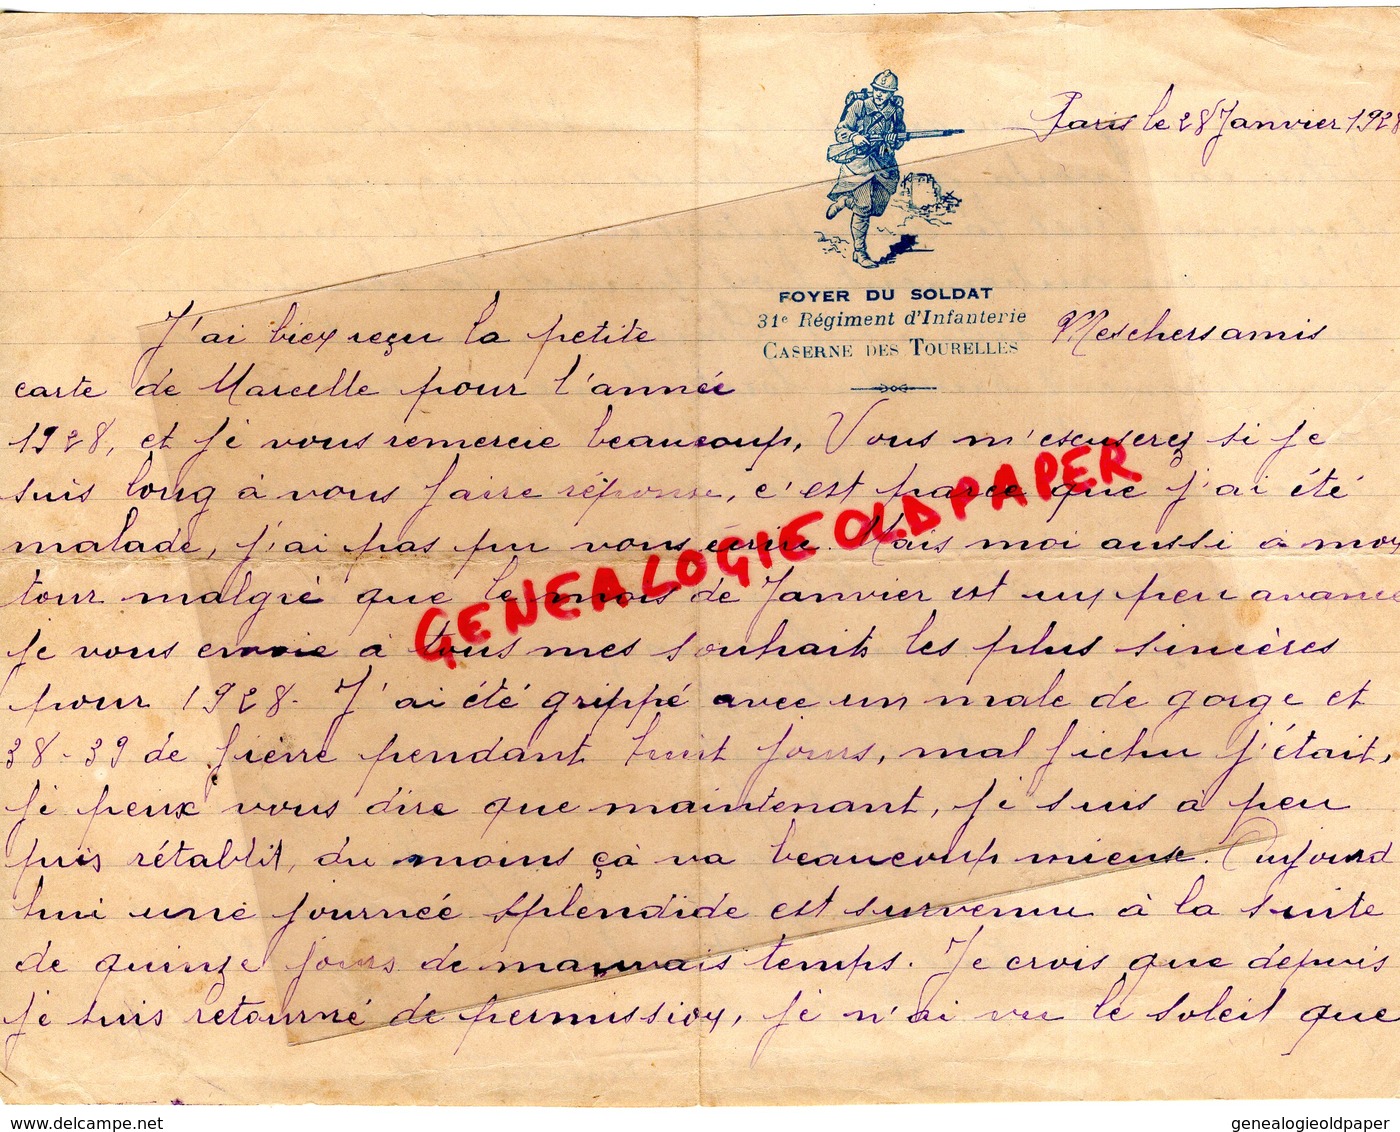 Paris le 28 Janvier 1928
FOYER DU SOLDAT
31e Régiment d'Infanterie
CASERNE DES TOURELLES
Meschersamis
J'ai bien reçu la petite
carte de Marcelle pour l'année
1928, et je vous remercie beaucoup, Vous m'escuserez si je
suis long à vous faire réponse, c'est parce que j'ai été
malade, j'ai pas pu vous écrire. Mais moi aussi à mon
tour malgré que le mois de Janvier est un peu avancé
je vous envoie à tous mes souhaits les plus sincères
pour 1928. J'ai été grippé avec un male de gorge et
38-39 de fièvre pendant huit jours, mal fichu j'était,
je peux vous dire que maintenant, je suis à peu
près rétablit, du moins çà va beaucoup mieux. Aujourd
hui une journée splendide est survenu à la suite
de quinze jours de mauvais temps. Je crois que depuis
je suis retourné de permission, je n'ai vu le soleil que
GENEALOGIE OLD PAPER
genealogieoldpaper
genealogieoldpaper